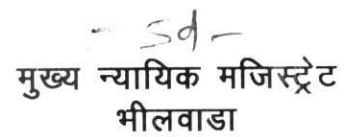 - Sd -
मुख्य न्यायिक मजिस्ट्रेट
भीलवाडा